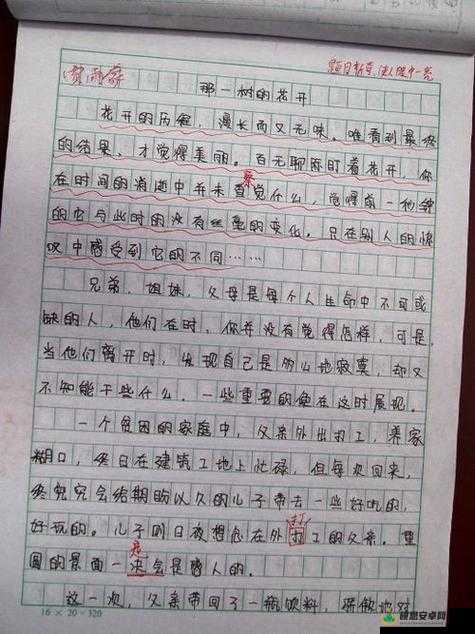 那一树的花开
题目新奇,使人眼前一亮
花开的历程,漫长而又无味。唯看到最终
的结果,才觉得美丽。百无聊际盯着花开,你
在时间的消逝中并未查觉什么,觉得成一他
察
的它与此时的没有丝毫的变化。只在别人的惊
叹中感受到它的不同……
兄弟,姐妹,父母是每个人生命中不可或
缺的人,他们在时,你并没有觉得怎样,可是,
当他们离开时,发现自己是的心地寂寞,却又
不知能干些什么。一些重要的便在这时展现。
一个贫困的家庭中,父亲外出打工,养家
糊口,终日在建筑工地上忙碌,但每次回来,
终究会给期盼以久的儿子带去一些好吃的,
好玩的。儿子则日夜想念在外打工的父亲。重
打
圆的景面一决会是感人的。
定
这一次,父亲带回了一瓶饮料,
16×20=320